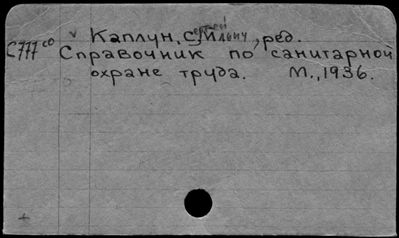 Каплун, Сергей Ильич, ред.
С777со Справочник по санитарной
охране труда. М., 1936.